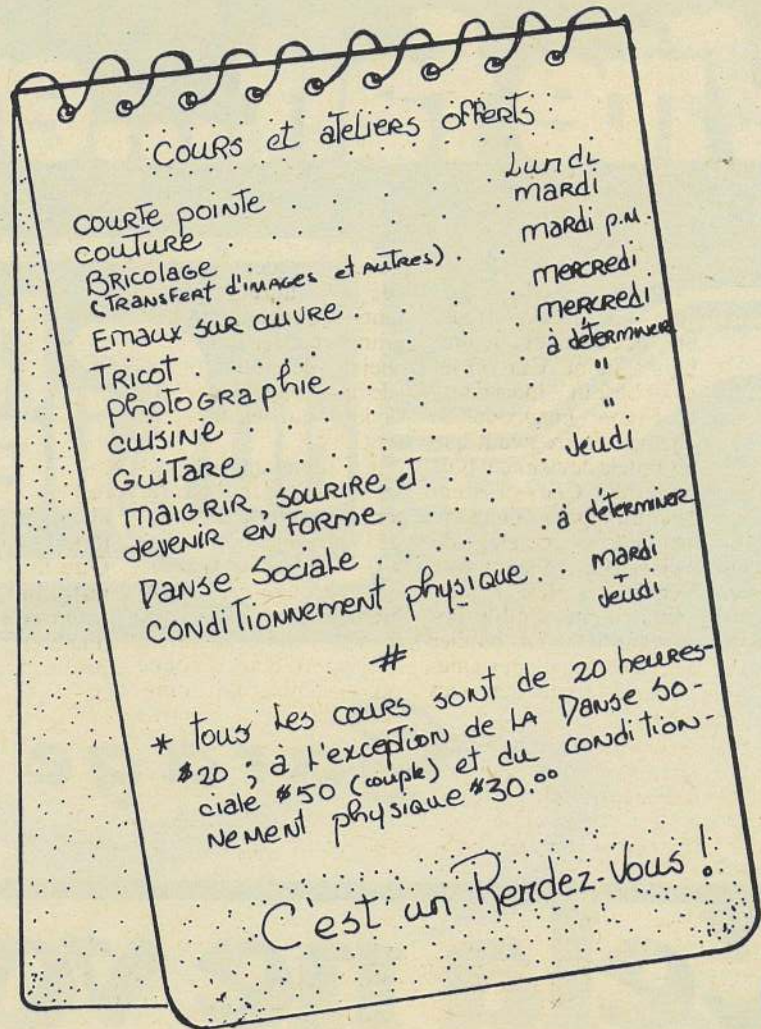 Cours et ateliers offerts :
courte pointe . . . . . Lundi
couture . . . . . mardi
Bricolage . . . . . mardi p.m.
(Transfert d'images et autres)
Emaux sur cuivre . . . . . mercredi
Tricot . . . . . mercredi
photographie . . . . . à déterminer
cuisine . . . . . "
Guitare . . . . . "
maigrir, sourire et . . . . . Jeudi
devenir en forme
Danse Sociale . . . . . à déterminer
conditionnement physique . . mardi
+
Jeudi
#
* tous les cours sont de 20 heures-
$20 ; à l'exception de la Danse So-
ciale $50 (couple) et du condition-
nement physique $30.00
C'est un Rendez-Vous !